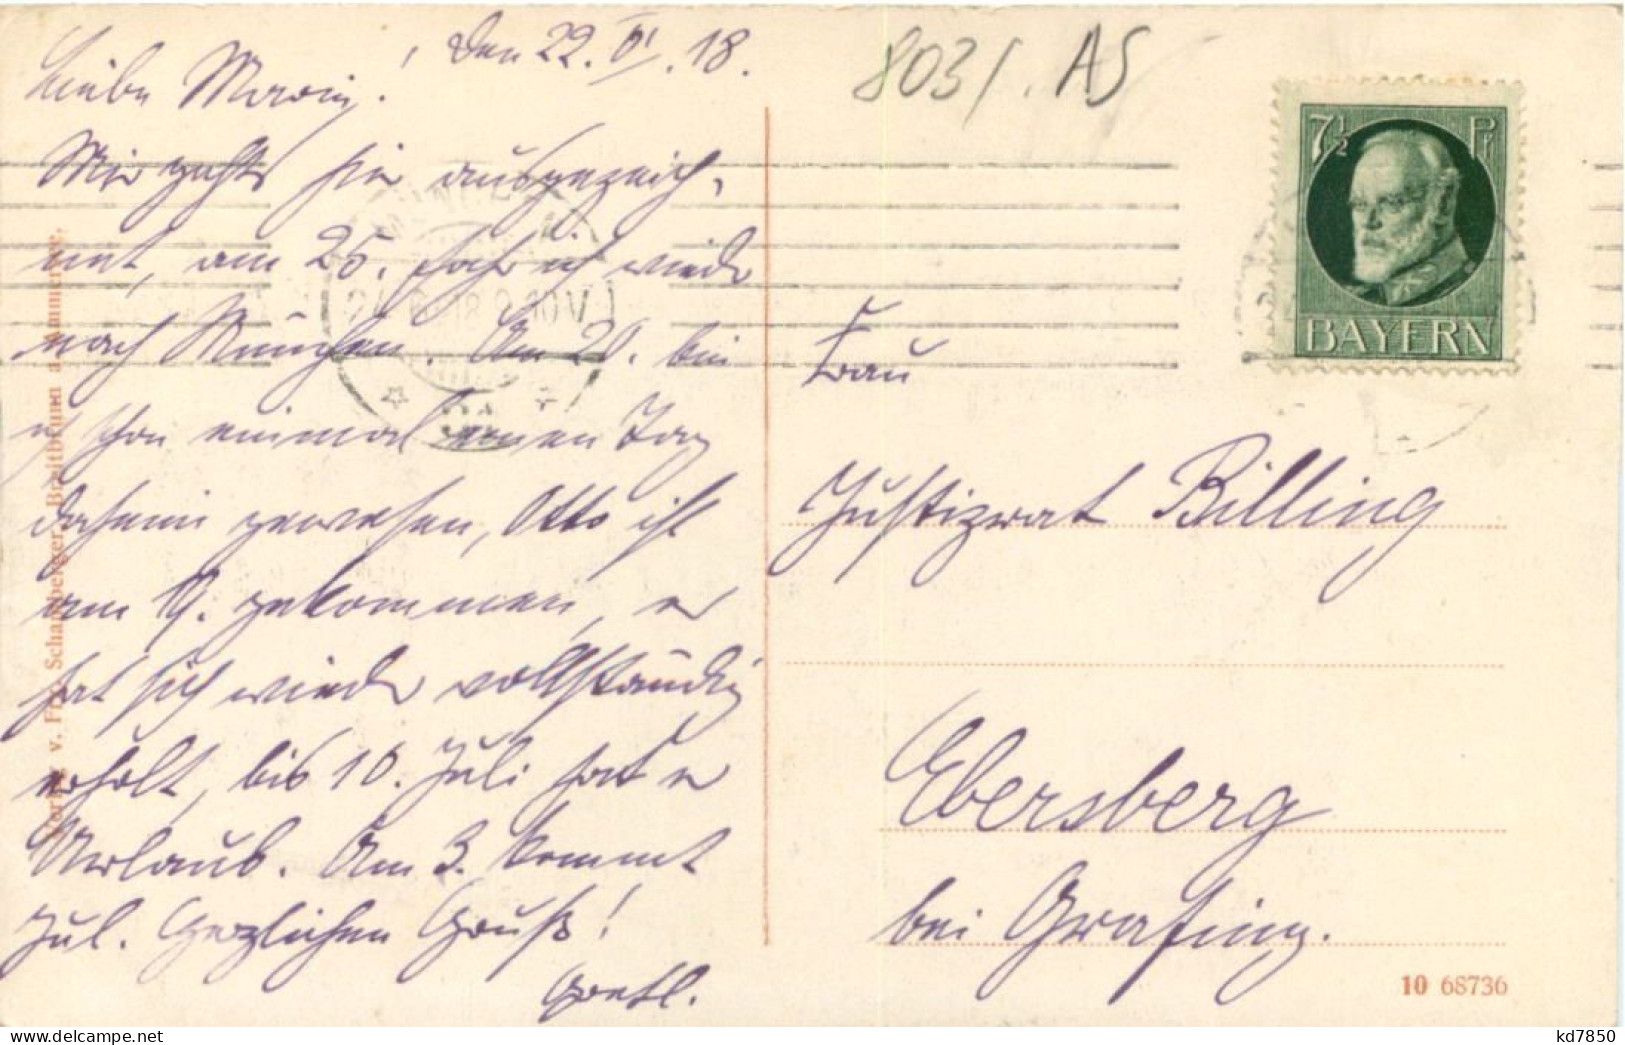 den 22. VI. 18.
Liebe Marie!
Mir geht's hier ausgezeich-
net, am 25. fahr ich wieder
nach München. Am 20. bin
ich schon einmal einen Tag
daheim gewesen, Otto ist
am 19. gekommen, er
hat sich wieder vollständig
erholt, bis 10. Juli hat er
Urlaub. Am 3. kommt
Jul. Herzlichen Gruß!
Gretl.
8031. AS
7½ Pf
BAYERN
Frau
Justizrat Billing
Ebersberg
bei Grafing.
10 68736
Verlag v. Frz. Schaumberger, Breitbrunn a. Ammersee.
kd7850